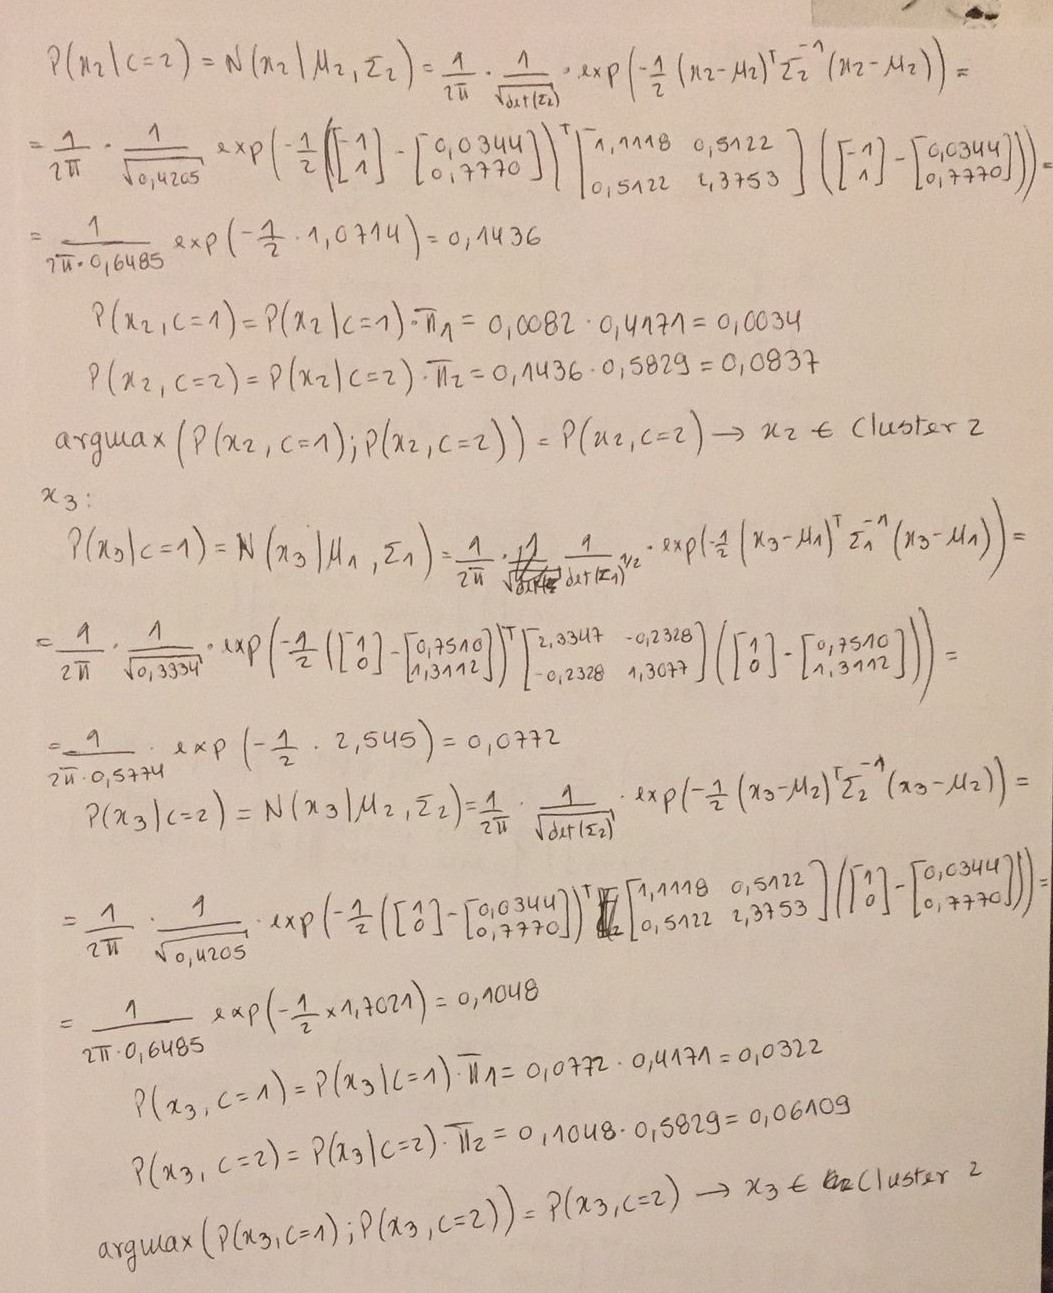 P(x₂|c=2) = N(x₂|μ₂,Σ₂) = 1/2π · 1/√det(Σ₂) · exp(-1/2 (x₂-μ₂)ᵀ Σ₂⁻¹ (x₂-μ₂)) =
= 1/2π · 1/√0,4205 exp(-1/2 ([-1 1] - [0,0344 0,7770])ᵀ [1,1118 0,5122 0,5122 2,3753] ([-1 1] - [0,0344 0,7770])) =
= 1/2π·0,6485 exp(-1/2 · 1,0714) = 0,1436
P(x₂,c=1) = P(x₂|c=1)·π₁ = 0,0082 · 0,4171 = 0,0034
P(x₂,c=2) = P(x₂|c=2)·π₂ = 0,1436 · 0,5829 = 0,0837
argmax (P(x₂,c=1);P(x₂,c=2)) = P(x₂,c=2) → x₂ ∈ Cluster 2
x₃:
P(x₃|c=1) = N(x₃|μ₁,Σ₁) = 1/2π · 1/det(Σ₁)^1/2 · exp(-1/2 (x₃-μ₁)ᵀ Σ₁⁻¹ (x₃-μ₁)) =
= 1/2π · 1/√0,3334 · exp(-1/2 ([1 0] - [0,7510 1,3112])ᵀ [2,3347 -0,2328 -0,2328 1,3077] ([1 0] - [0,7510 1,3112])) =
= 1/2π·0,5774 · exp(-1/2 · 2,545) = 0,0772
P(x₃|c=2) = N(x₃|μ₂,Σ₂) = 1/2π · 1/√det(Σ₂) · exp(-1/2 (x₃-μ₂)ᵀ Σ₂⁻¹ (x₃-μ₂)) =
= 1/2π · 1/√0,4205 · exp(-1/2 ([1 0] - [0,0344 0,7770])ᵀ [1,1118 0,5122 0,5122 2,3753] ([1 0] - [0,0344 0,7770])) =
= 1/2π·0,6485 exp(-1/2 × 1,7021) = 0,1048
P(x₃,c=1) = P(x₃|c=1)·π₁ = 0,0772 · 0,4171 = 0,0322
P(x₃,c=2) = P(x₃|c=2)·π₂ = 0,1048 · 0,5829 = 0,06109
argmax (P(x₃,c=1);P(x₃,c=2)) = P(x₃,c=2) → x₃ ∈ Cluster 2